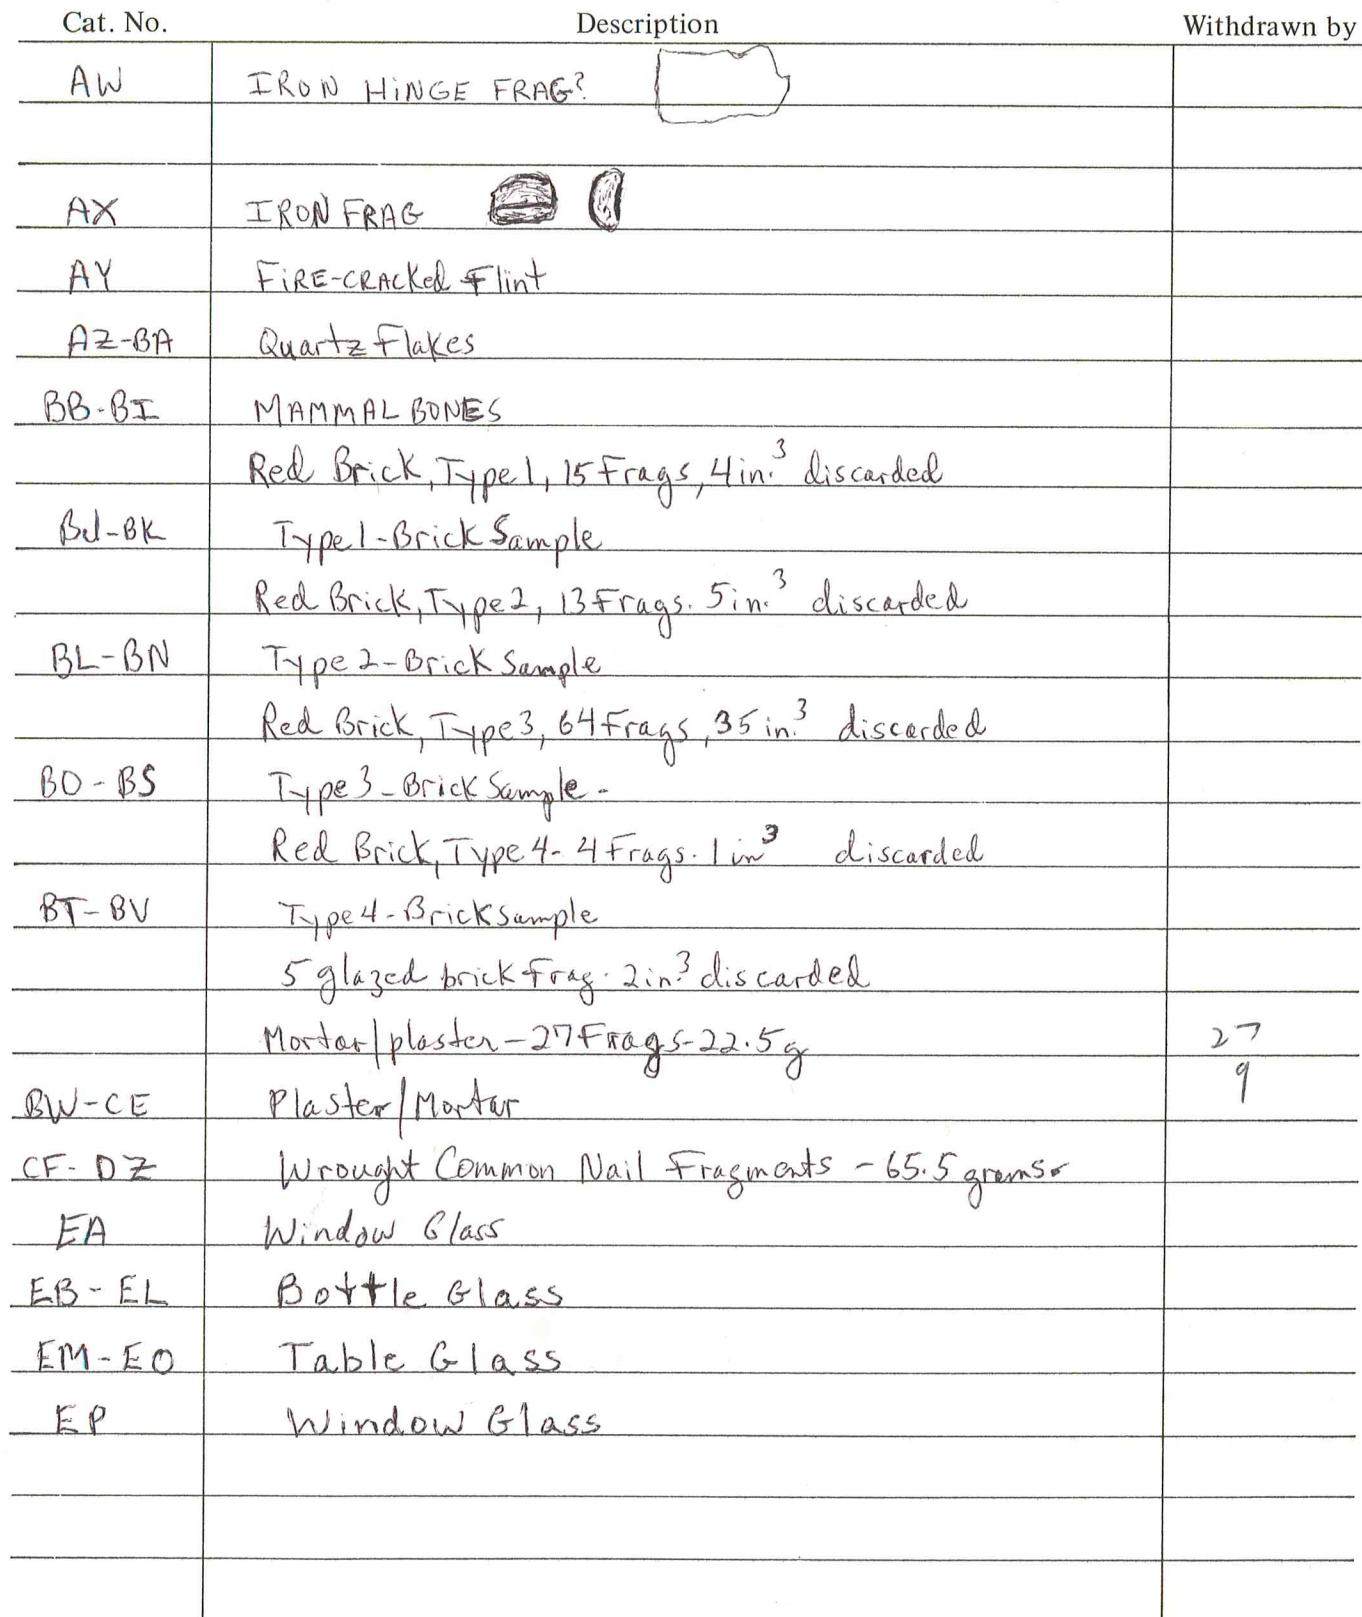 Cat. No. Description Withdrawn by
AW IRON HINGE FRAG?
AX IRON FRAG
AY FIRE-CRACKed Flint
AZ-BA Quartz Flakes
BB-BI MAMMAL BONES
Red Brick, Type 1, 15 Frags, 4 in.³ discarded
BJ-BK Type 1-Brick Sample
Red Brick, Type 2, 13 Frags. 5 in.³ discarded
BL-BN Type 2-Brick Sample
Red Brick, Type 3, 64 Frags, 35 in.³ discarded
BO-BS Type 3-Brick Sample-
Red Brick, Type 4- 4 Frags. 1 in³ discarded
BT-BV Type 4-Brick sample
5 glazed brick frag. 2 in.³ discarded
Mortar/plaster-27 Frags-22.5g 27
BW-CE Plaster/Mortar 9
CF-DZ Wrought Common Nail Fragments - 65.5 grams
EA Window Glass
EB-EL Bottle Glass
EM-EO Table Glass
EP Window Glass